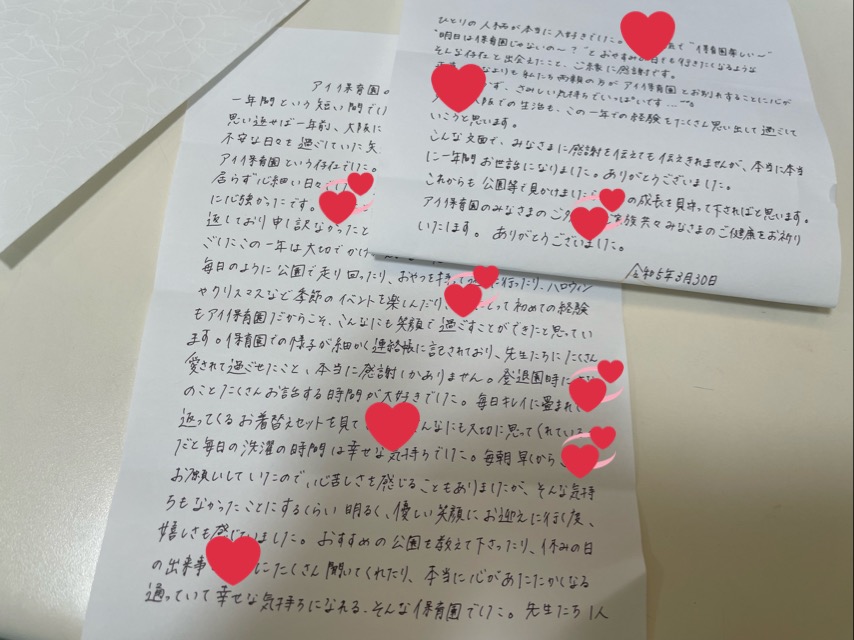 アイイ保育園。
一年間という短い間でし
思い返せば一年前、大阪に
不安な日々を過ごしていた矢
アイイ保育園という存在でした。
居らず心細い日々でし
に心強かったです。
返しており申し訳なかったと
ごしたこの一年は大切でかけ
毎日のように公園で走り回ったり、おやつを持って に行ったり、ハロウィン
やクリスマスなど季節のイベントを楽しんだり、 にとって初めての経験
もアイイ保育園だからこそ、こんなにも笑顔で過ごすことができたと思ってい
ます。保育園での様子が細かく連絡帳に記されており、先生たちにたくさん
愛されて過ごせたこと、本当に感謝しかありません。登退園時に
のことたくさんお話する時間が大好きでした。毎日キレイに畳まれて
返ってくるお着替えセットを見て んなにも大切に思ってくれている
だと毎日の洗濯の時間は幸せな気持ちでした。毎朝早くから
お願いしていたので、心苦しさを感じることもありましたが、そんな気持
ちもなかったことにするくらい明るく、優しい笑顔にお迎えに行く度、
嬉しさも感じていました。おすすめの公園を教えて下さったり、休みの日
の出来事 にたくさん聞いてくれたり、本当に心があたたかくなる
通っていて幸せな気持ちになれる、そんな保育園でした。先生たち1人
ひとりの人柄が本当に大好きでした。 れて"保育園楽しい〜"
"明日は保育園じゃないの〜?"とおやすみの日でも行きたくなるような
そんな存在と出会えたこと、ご縁に感謝です。
なによりも私たち両親の方がアイイ保育園とお別れすることに心が
かず、さみしい気持ちでいっぱいです…
阪での生活も、この一年での経験をたくさん思い出して過ごして
いこうと思います。
こんな文面で、みなさまに感謝を伝えても伝えきれませんが、本当に本当
に一年間お世話になりました。ありがとうございました。
これからも公園等で見かけました の成長を見守って下さればと思います。
アイイ保育園のみなさまのご 族共々みなさまのご健康をお祈り
いたします。ありがとうございました。
令和5年3月30日